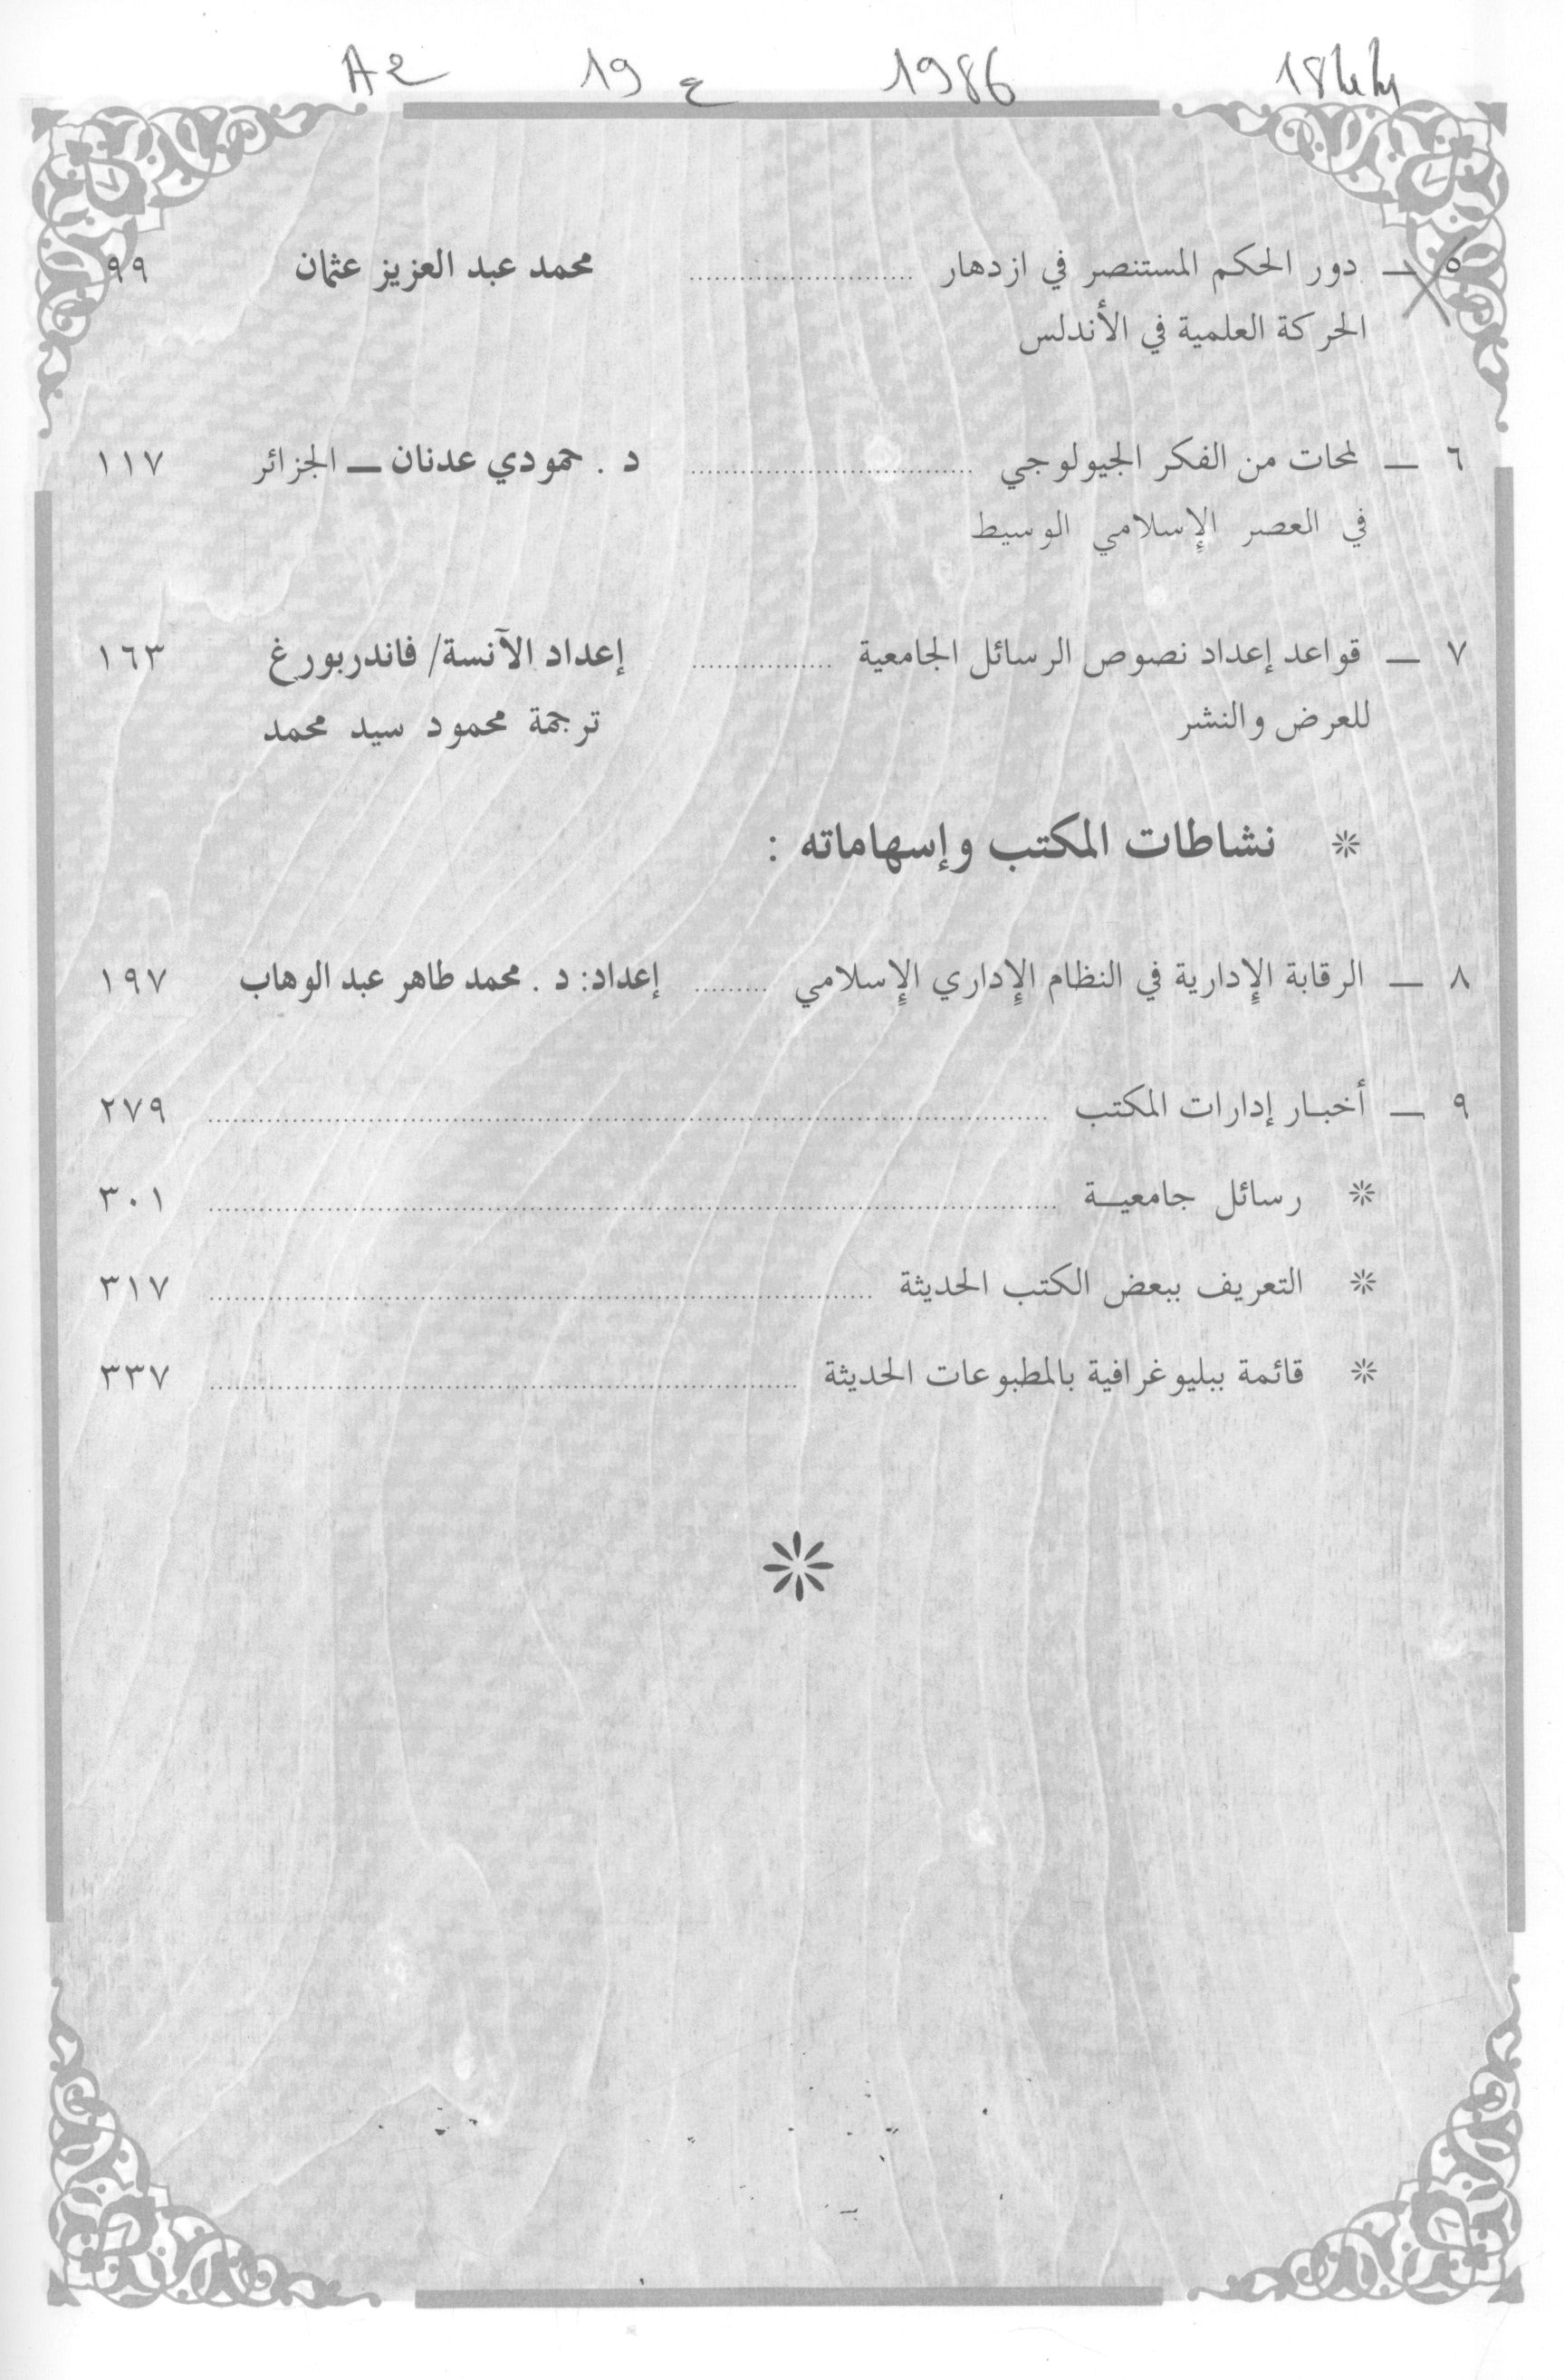 A2 19 ع 1986 1844
٥ — دور الحكم المستنصر في ازدهار ........ محمد عبد العزيز عثمان ٩٩
الحركة العلمية في الأندلس
٦ — لمحات من الفكر الجيولوجي ........ د . حمودي عدنان — الجزائر ١١٧
في العصر الإسلامي الوسيط
٧ — قواعد إعداد نصوص الرسائل الجامعية ........ إعداد الآنسة/ فاندربورغ ١٦٣
للعرض والنشر ترجمة محمود سيد محمد
* نشاطات المكتب وإسهاماته :
٨ — الرقابة الإدارية في النظام الإداري الإسلامي ........ إعداد: د . محمد طاهر عبد الوهاب ١٩٧
٩ — أخبـار إدارات المكتب ........ ٢٧٩
* رسائل جامعيـــة ........ ٣٠١
* التعريف ببعض الكتب الحديثة ........ ٣١٧
* قائمة ببليوغرافية بالمطبوعات الحديثة ........ ٣٣٧